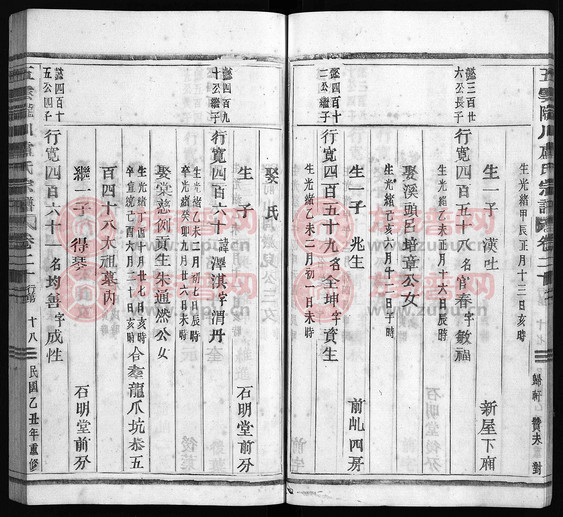 五雲隴川盧氏宗譜 卷二十 歸軒 贊夫 對
生光緒甲辰正月十三日亥時
懿三百廿六公長子
行寬四百五十八 名官春 字敏福
生一子 漢吐 新屋下廂
生光緒乙未正月十六日辰時
娶溪頭呂培章公女
生光緒己亥六月初十日子時
懿四百十二公繼子
行寬四百五十九 名金坤 字資生
生一子 兆生 前乢四房
生光緒乙未二月初一日未時
娶 氏
生 子 石明堂前分
懿四百九十公繼子
行寬四百六十 諱澤淇 字渭丹
生光緒乙未二月初七日辰時
卒光緒癸卯九月廿六日未時
娶棠慈例貢生朱通然公女
生光緒丁酉十月廿七日亥時
卒宣統己酉六月廿三日亥時
合葬龍爪坑恭五
百四十八太祖墓內
繼一子 得琴 石明堂前分
懿四百十五公四子
行寬四百六十一 名均善 字成性
五雲隴川盧氏宗譜 卷二十 行第 十八 民國乙丑年重修